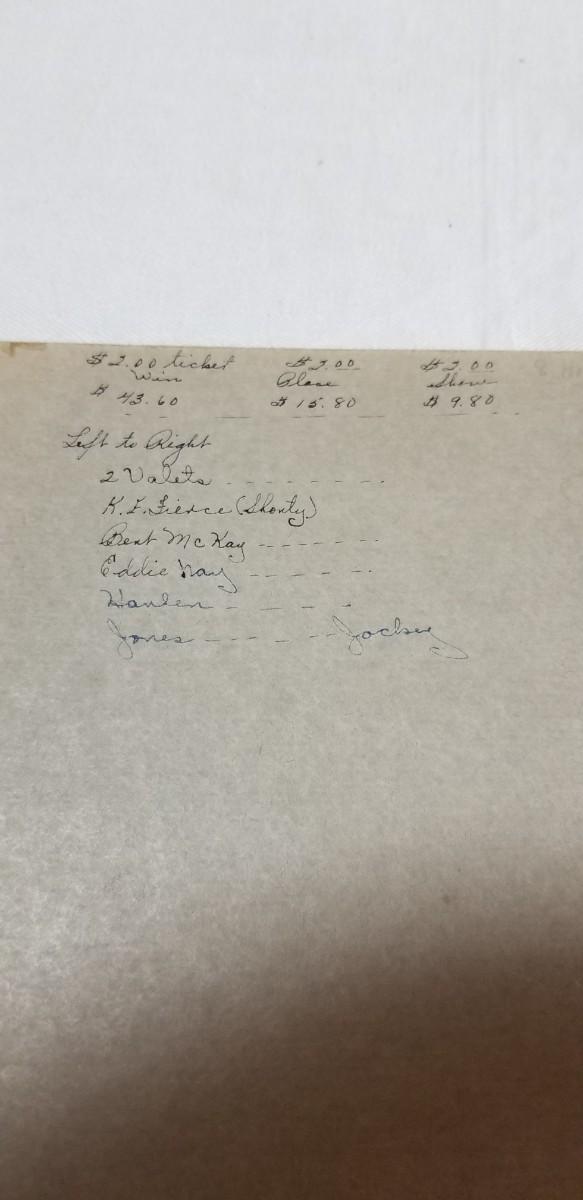 $2.00 ticket $2.00 $2.00
Win Place Show
$ 43.60 $ 15.80 $ 9.80
Left to Right
2 Valets - - - - - - - -
K. F. Fierce (Shorty)
Bent McKay - - - - - -
Eddie Nay - - - - -
Hanlen - - - -
Jones - - - - - - Jockey